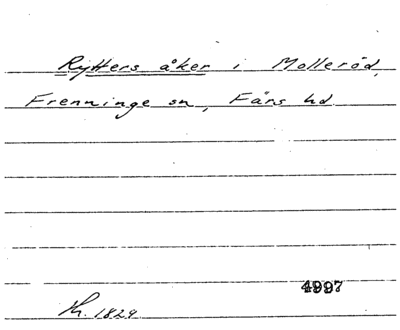 Ryttersåker i Molleröd,
Frenninge sn, Färs hd
4997
Kh. 1829